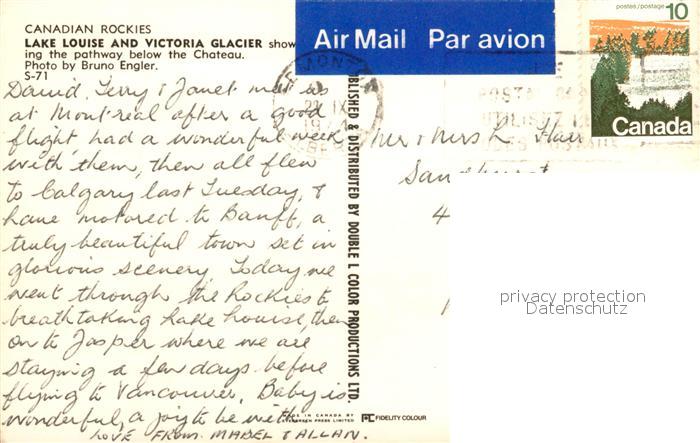 CANADIAN ROCKIES
LAKE LOUISE AND VICTORIA GLACIER show
ing the pathway below the Chateau.
Photo by Bruno Engler.
S-71
David, Terry & Janet met us
at Montreal after a good
flight, had a wonderful week
with them, then all flew
to Calgary last Tuesday, &
have motored to Banff, a
truly beautiful town set in
glorious scenery, Today we
went through the Rockies to
breathtaking Lake Louise, then
on to Jasper where we are
staying a few days before
flying to Vancouver. Baby is
wonderful, a joy to be with
LOVE FROM MABEL & ALLAN.
PUBLISHED & DISTRIBUTED BY DOUBLE L COLOR PRODUCTIONS LTD.
MADE IN CANADA BY
EVERGREEN PRESS LIMITED
FC FIDELITY COLOUR
Air Mail Par avion
postes/postage
10
Canada
EDMONTON
21 IX
POSTAL
UTILISEZ
Mr & Mrs L.
Sandhurst
4
privacy protection
Datenschutz